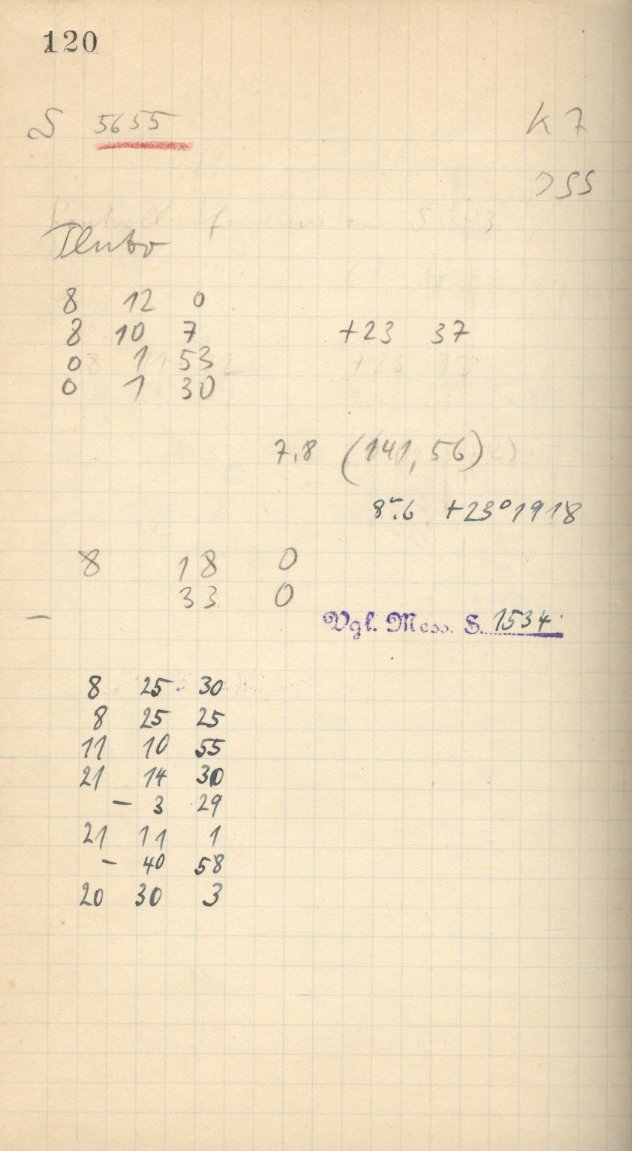 120
S 5655 K 7
Pluto
8 12 0
8 10 7 +23 37
0 1 53
0 1 30
7,8 (141, 56)
8m.6 +23°1918
8 18 0
33 0
–
Vgl. Mess. S. 1534
8 25 30
8 25 25
11 10 55
21 14 30
– 3 29
21 11 1
– 40 58
20 30 3